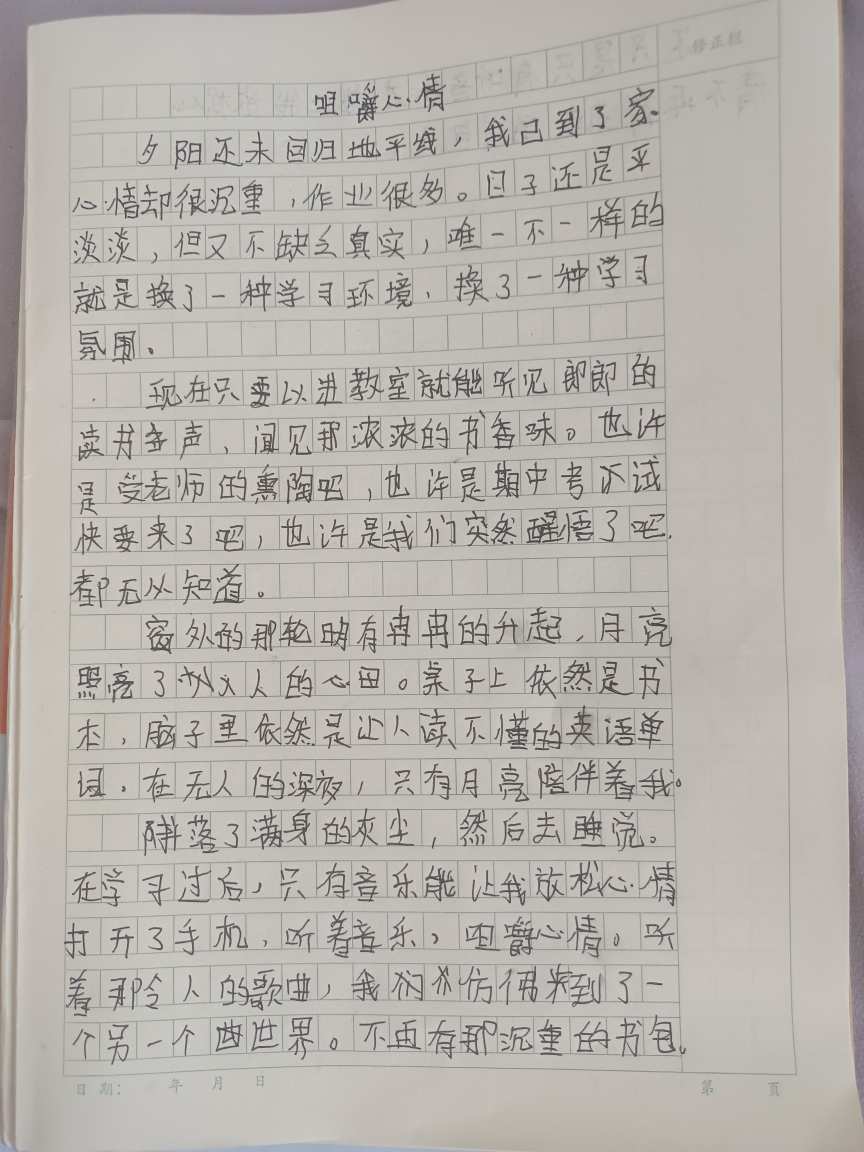 修正栏
咀嚼心情
夕阳还未回归地平线，我己到了家.
心情却很沉重，作业很多。日子还是平
淡淡，但又不缺乏真实，唯一不一样的
就是换了一种学习环境，换了一种学习
氛围。
现在只要以进教室就能听见郎郎的
读书声，闻见那浓浓的书香味。也许
是受老师的熏陶吧，也许是期中考试
快要来了吧，也许是我们突然醒悟了吧.
都无从知道。
窗外的那轮明有冉冉的升起，月亮
照亮了人的心田。桌子上依然是书
本，脑子里依然是让人读不懂的英语单
词．在无人的深夜，只有月亮陪伴着我。
抖落了满身的灰尘，然后去睡觉。
在学习过后，只有音乐能让我放松心情
打开了手机，听着音乐，咀嚼心情。听
着那令人的歌曲，我们仿佛来到了一
个另一个世界。不再有那沉重的书包。
日期： 年 月 日 第 页